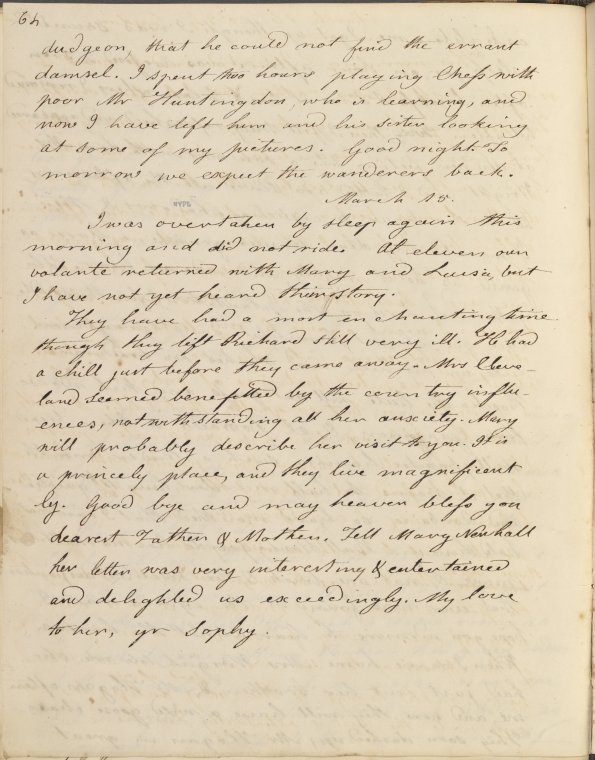 64
dudgeon, that he could not find the errant
damsel. I spent two hours playing Chess with
poor Mr Huntingdon, who is learning, and
now I have left him and his sister looking
at some of my pictures. Good night. To
morrow we expect the wanderers back.
March 15.
I was overtaken by sleep again this
morning and did not ride. At eleven our
volante returned with Mary and Luisa, but
I have not yet heard their story.
They have had a most enchanting time
though they left Richard still very ill. He had
a chill just before they came away. Mrs Cleve-
land seemed benefitted by the country influ-
ences, notwithstanding all her anxiety. Mary
will probably describe her visit to you. It is
a princely place, and they live magnificent
ly. Good bye and may heaven bless you
dearest Father & Mother. Tell Mary Newhall
her letter was very interesting & entertained
and delighted us exceedingly. My love
to her, yr Sophy.